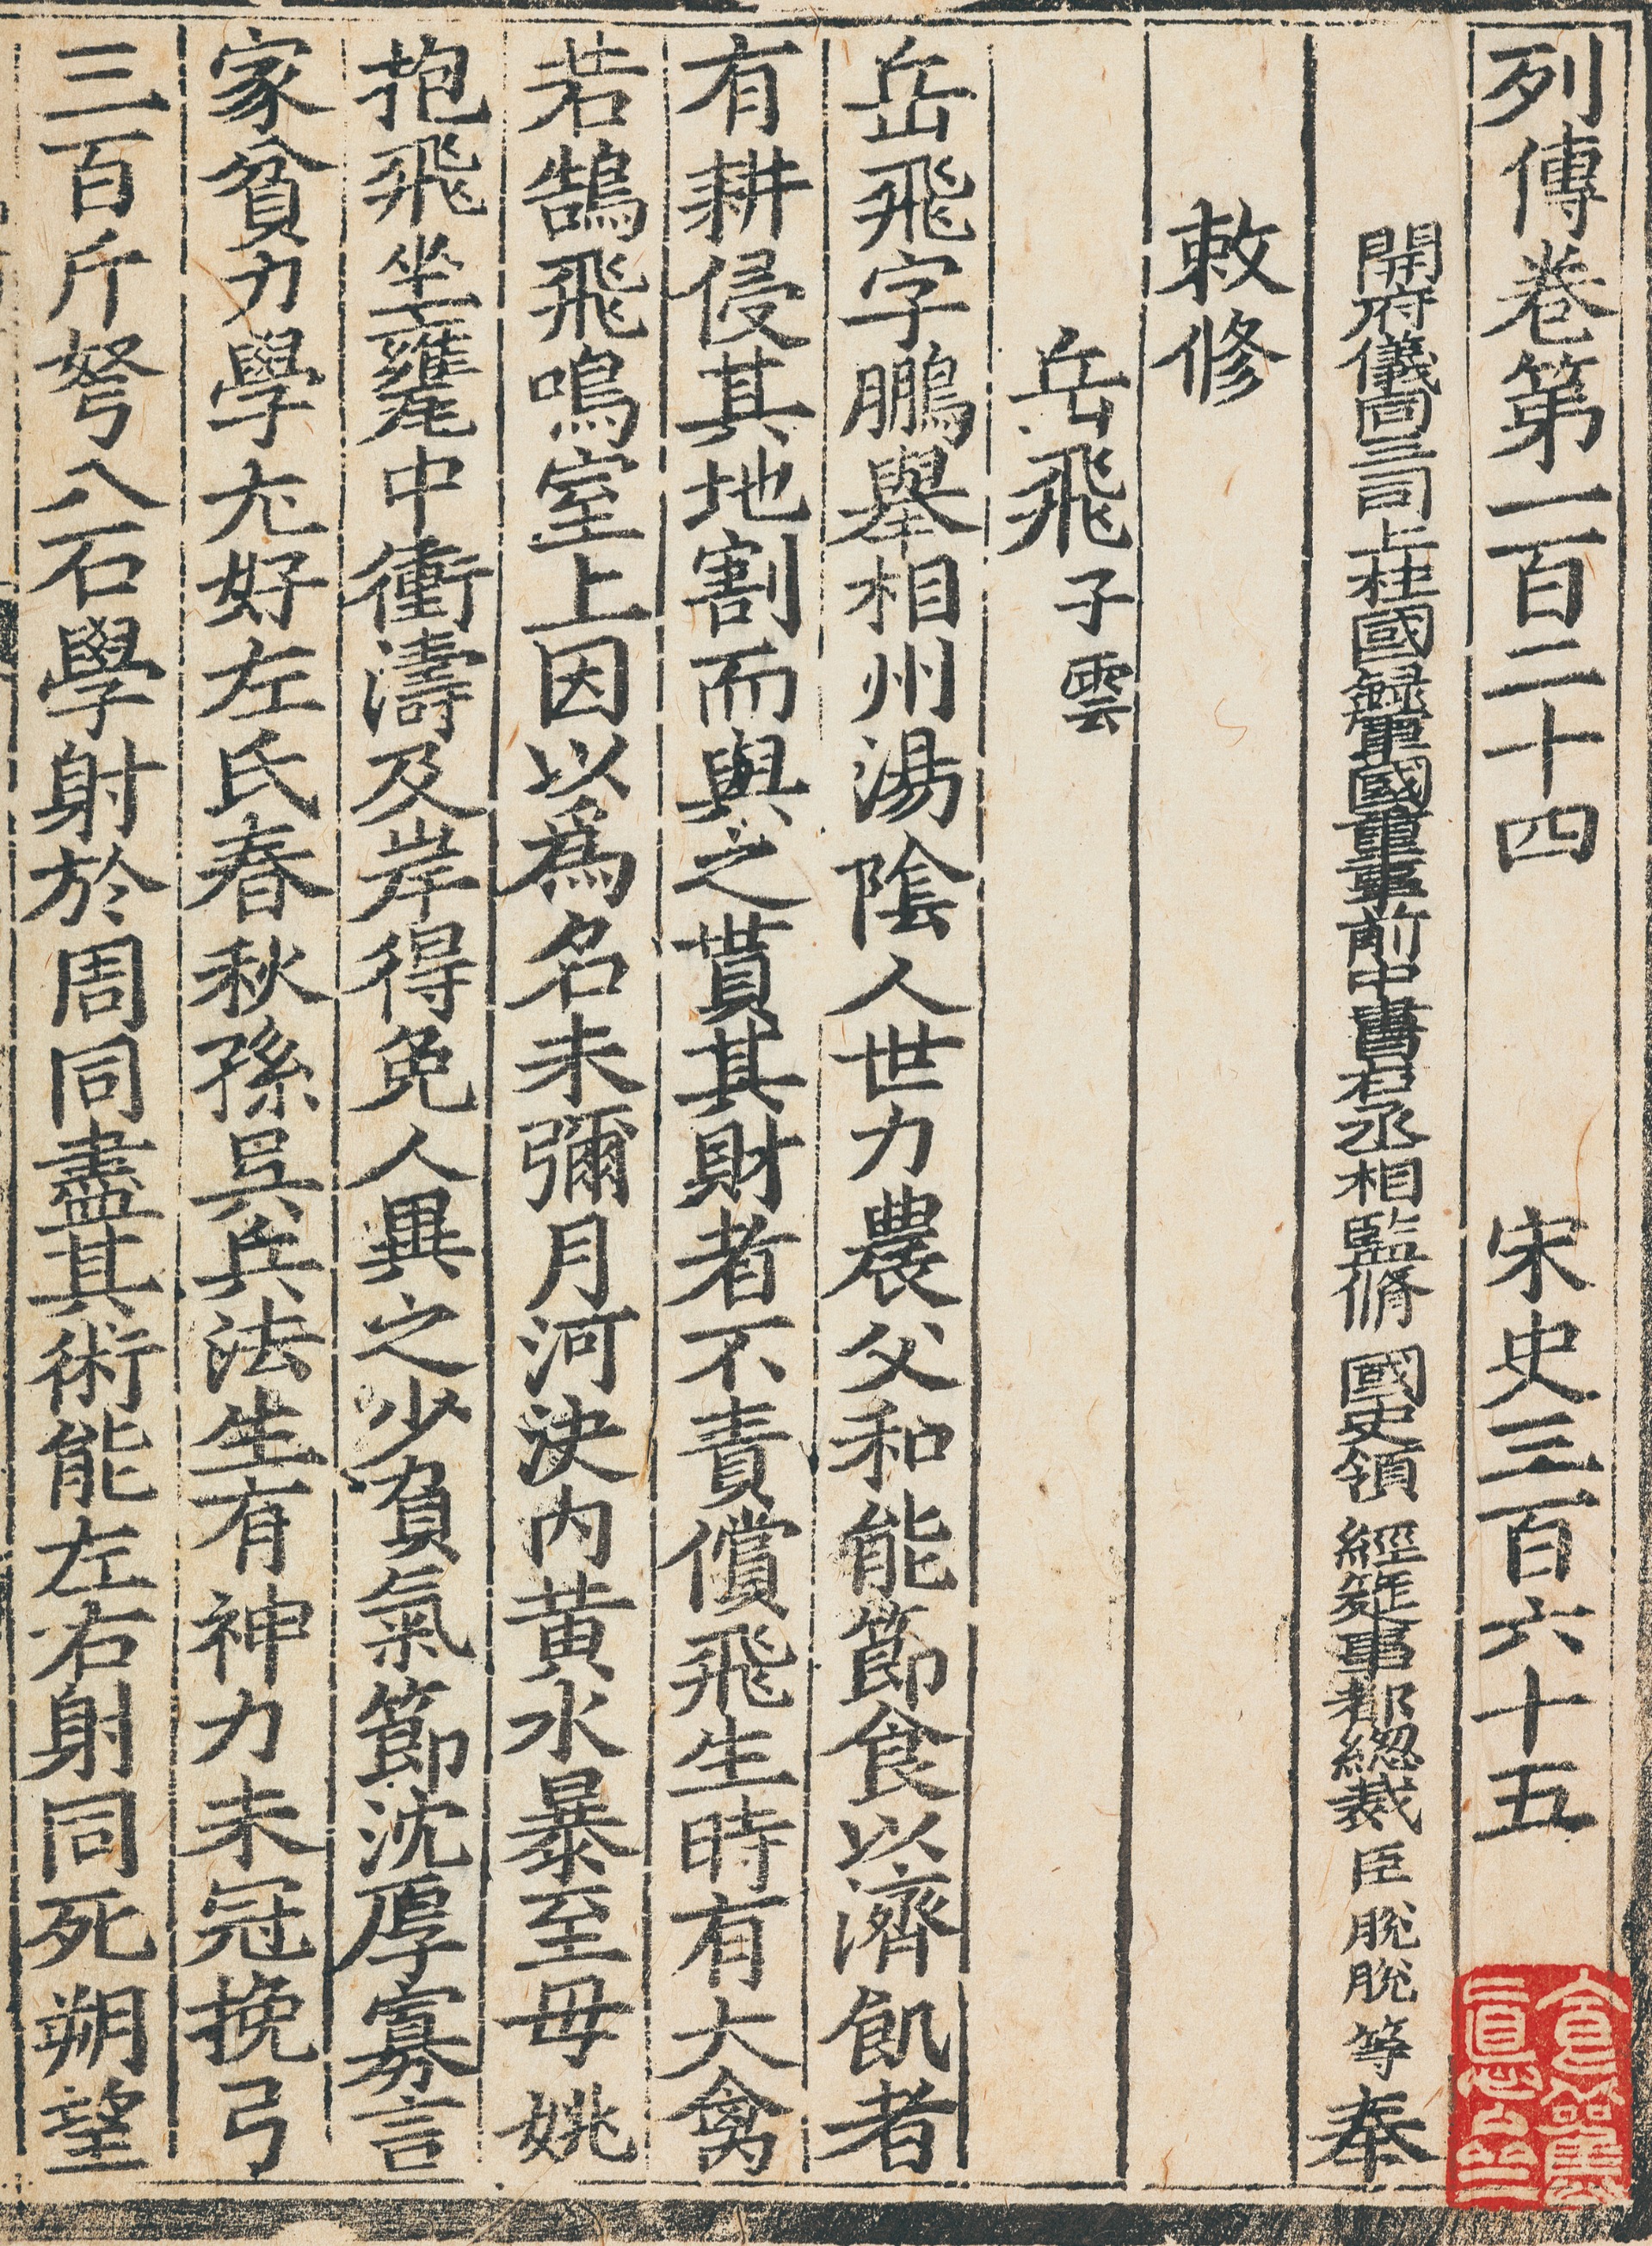 列傳卷第一百二十四 宋史三百六十五
開府儀同三司上柱國録軍國重事前中書右丞相監脩 國史領 經筵事都緫裁 臣 脫脫 等 奉
敕修
岳飛 子雲
岳飛字鵬舉相州湯陰人世力農父和能節食以濟飢者
有耕侵其地割而與之貰其財者不責償飛生時有大禽
若鵠飛鳴室上因以爲名未彌月河決内黃水暴至母姚
抱飛坐甕中衝濤及岸得免人異之少負氣節沈厚寡言
家貧力學尤好左氏春秋孫吳兵法生有神力未冠挽弓
三百斤弩八石學射於周同盡其術能左右射同死朔望